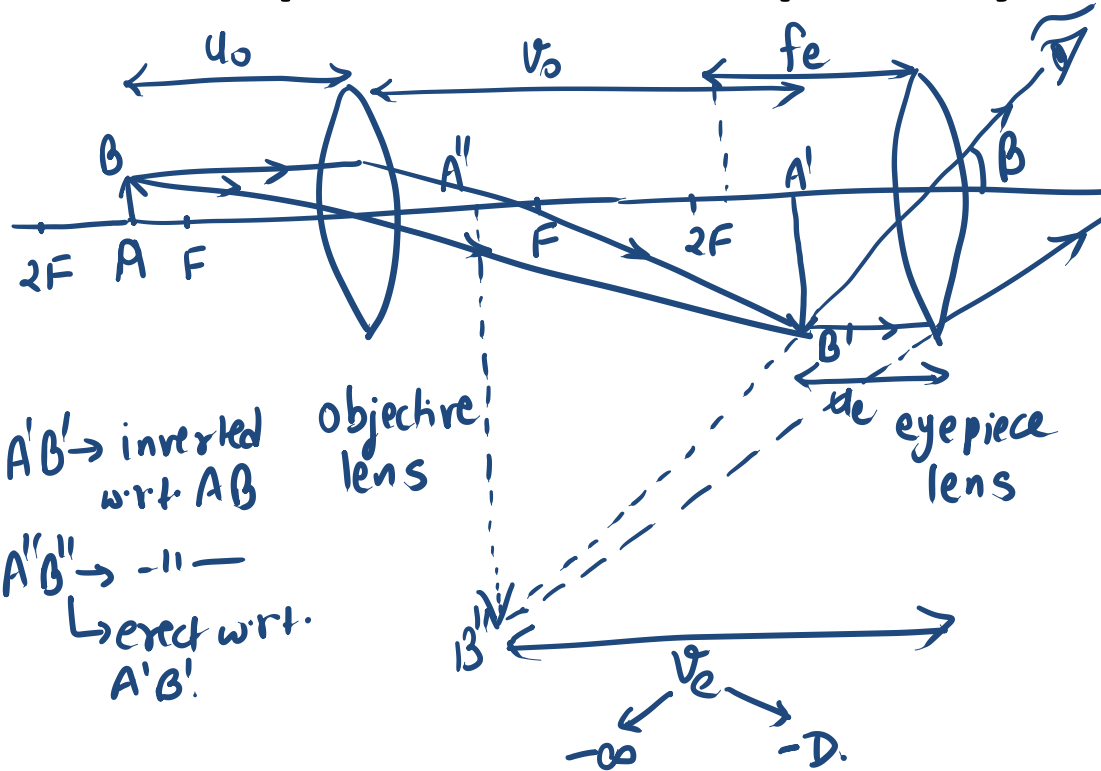 u₀
v₀
fe
B
A"
A'
β
2F
A
F
F
2F
B'
ue
objective
lens
eyepiece
lens
A'B' → inverted
w.r.t. AB
A"B" → -"—
↳ erect w.r.t.
A'B'.
B"
ve
-∞
-D.